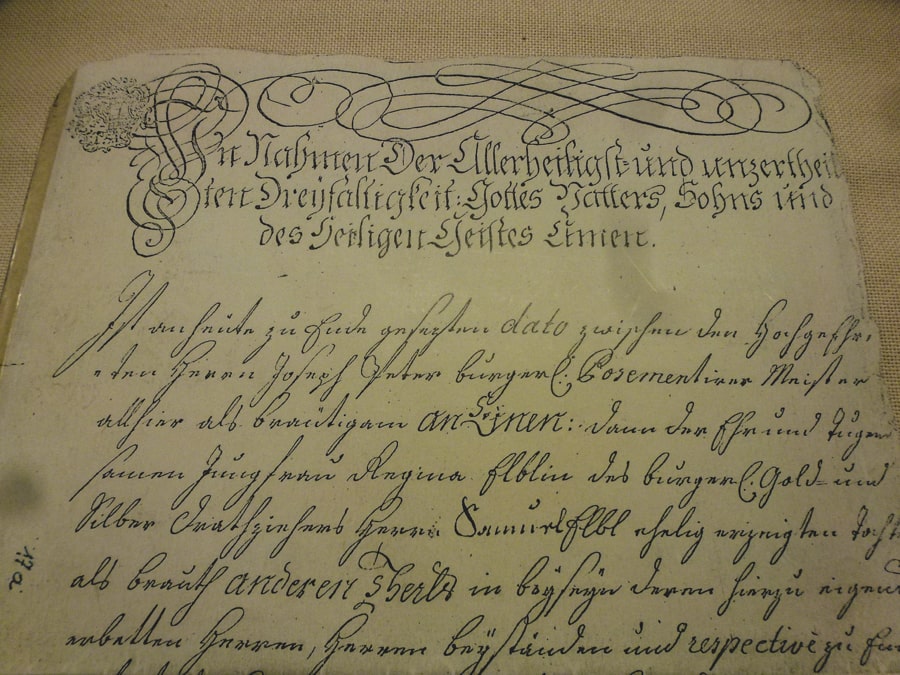 In Nahmen Der Allerheiligst- und unzerthei
sten Dreyfältigkeit: Gottes Vatters, Sohns und
des Heiligen Geistes Amen.
Ist anheute zu Ende gesezten dato zwischen den Hochgeehr-
-ten Herrn Joseph Peter burgerl: Posementirer Meister
allhier als bräutigam an Einen: dann der Ehr und Tugend
samen Jungfrau Regina Elblin des burgerl: Gold- und
Silber Drathziehers Herrn Samuel Elbl ehelig erzeigten Tocht
als brauth anderen Theils in beÿseÿn deren hierzu eigens
erbetten Herren, Herren beÿständen und respectivè zu
17a.